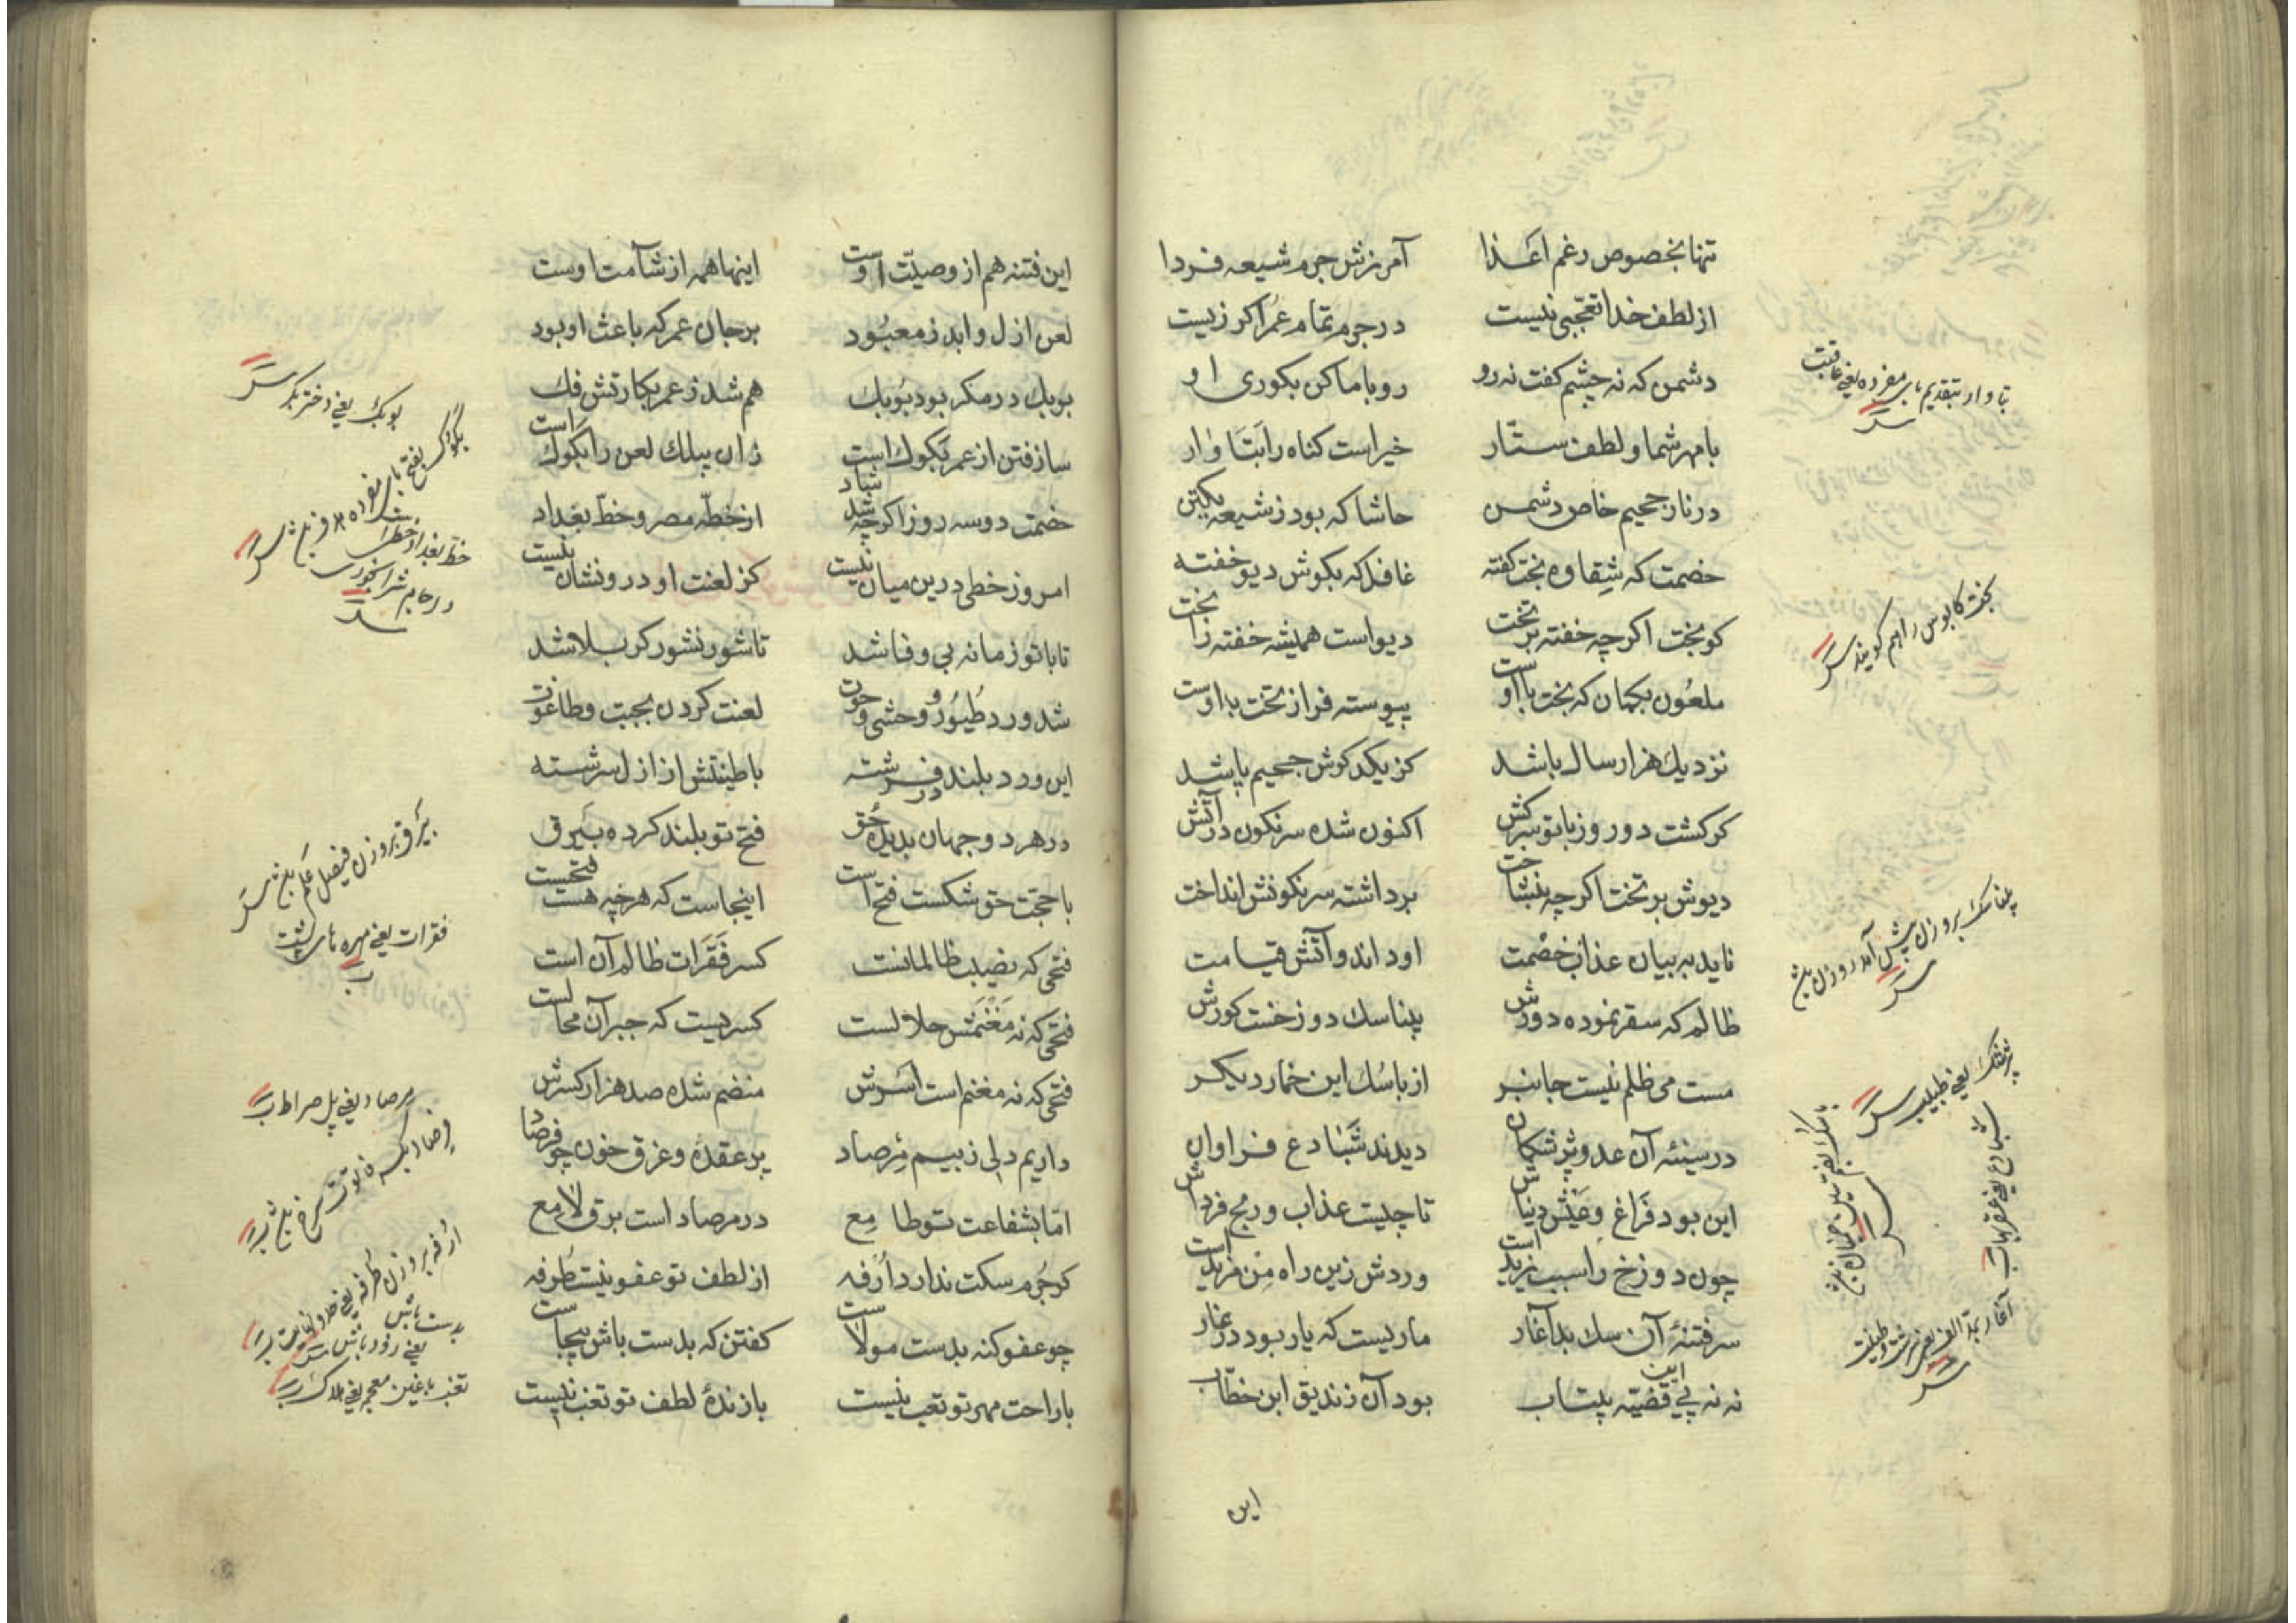 تنها بخصوص رغم اعدا آمرزش جرم شیعه فردا
از لطف خدا تعجبی نیست در جرم تمام عمر اکر زیست
دشمن که نه چشم کفت نه رو رو با ما کن بکوری او
با مهر شما و لطف ستّار خیر است کناه را بتاوار
در نار جحیم خاص دشمن حاشا که بود ز شیعه یکتن
خصمت که شقاوه بخت کفته غافل که بکوش دیو خفته
کو بخت اکرچه خفته بر تخت دیو است همیشه خفته را بخت
ملعون بکمان که بخت با اوست پیوسته فراز تخت با اوست
نزدیك هزار سال باشد کز یکد کوش جحیم باشد
کر کشت دو روز با تو سرکش اکنون شده سرنکون در آتش
دیوش بر تخت اکرچه بنشاخت برداشته سرنکونش انداخت
ناید به بیان عذاب خصمت او داند و آتش قیامت
ظالم که سقر نموده دورش پناسك دوزخست کورش
مست می ظلم نیست جانبر از باسك این خمار دیکر
در سینۀ آن عدو پزشکان دیدند شبادع فراوان
این بود فراغ و عیش دنیاش تا چیست عذاب و رنج فرداش
چون دوزخ را سبب یزید است وردش زین راه من مزید است
سر فتنۀ آن سك بد آغار ماریست که یار بود در غار
نه نه پی این قضیه پیتاب بود آن زندیق ابن خطّاب
این
تبا وار بتقدیم بای مفرده یعنی عاقبت
بخت کابوس را هم کویند
پزشك یعنی طبیب
شبادع یعنی عقربها
این فتنه هم از وصیّت اوست اینها همه از شآمت اوست
لعن ازل و ابد ز معبود بر جان عمر که باعث او بود
بوبك در مکر بود بوبك هم شد ز عمر بکارتش فك
سازفتن از عمر بکوك است زان پیلك لعن را بکوك است
خصمت دو سه روز اکرچه شد شاد از خطّه مصر و خطّ بغداد
امروز خطی درین میان نیست کز لعنت او درو نشان نیست
تا با تو زمانه بی وفا شد تا شور نشور کربلا شد
شد ورد طیور و وحشی و حوت لعنت کردن بجبت و طاغوت
این ورد بلند در فرشته با طینتش از ازل سرشته
در هر دو جهان بدیدۀ حق فتح تو بلند کرده بیرق
با حجت حق شکست فتح است اینجاست که هر چه هست فتحست
فتحی که نصیب ظالمانست کسر فقرات ظالم آن است
فتحی که نه مغنمش حلالست کسریست که جبر آن محالست
فتحی که نه مغنم است اسرش منضم شده صد هزار کسرش
داریم دلی ز بیم مرصاد پر عقده و غرق خون چو فرصاد
امّا بشفاعت تو طامع در مرصاد است برق لامع
کر جرم سکت ندارد ارفه از لطف تو عفو نیست طرفه
چو عفو کنه بدست مولاست کفتن که بدست باش بیجاست
با راحت مهر تو تعب نیست بازندۀ لطف تو تغب نیست
بوبك یعنی دختر بکر
بکوك بفتح بای مفرده
خط بغداد خطی است
در جام شرابخوری
بیرق بر وزن فیصل علم باشد
فقرات یعنی مهره های پشت
مرصاد یعنی پل صراط
فرصاد توت سرخ باشد
ارفه بر وزن طرفه یعنی حد و نهایت
بدست باش
یعنی زود باش
تغب با غین معجمه یعنی هلاك